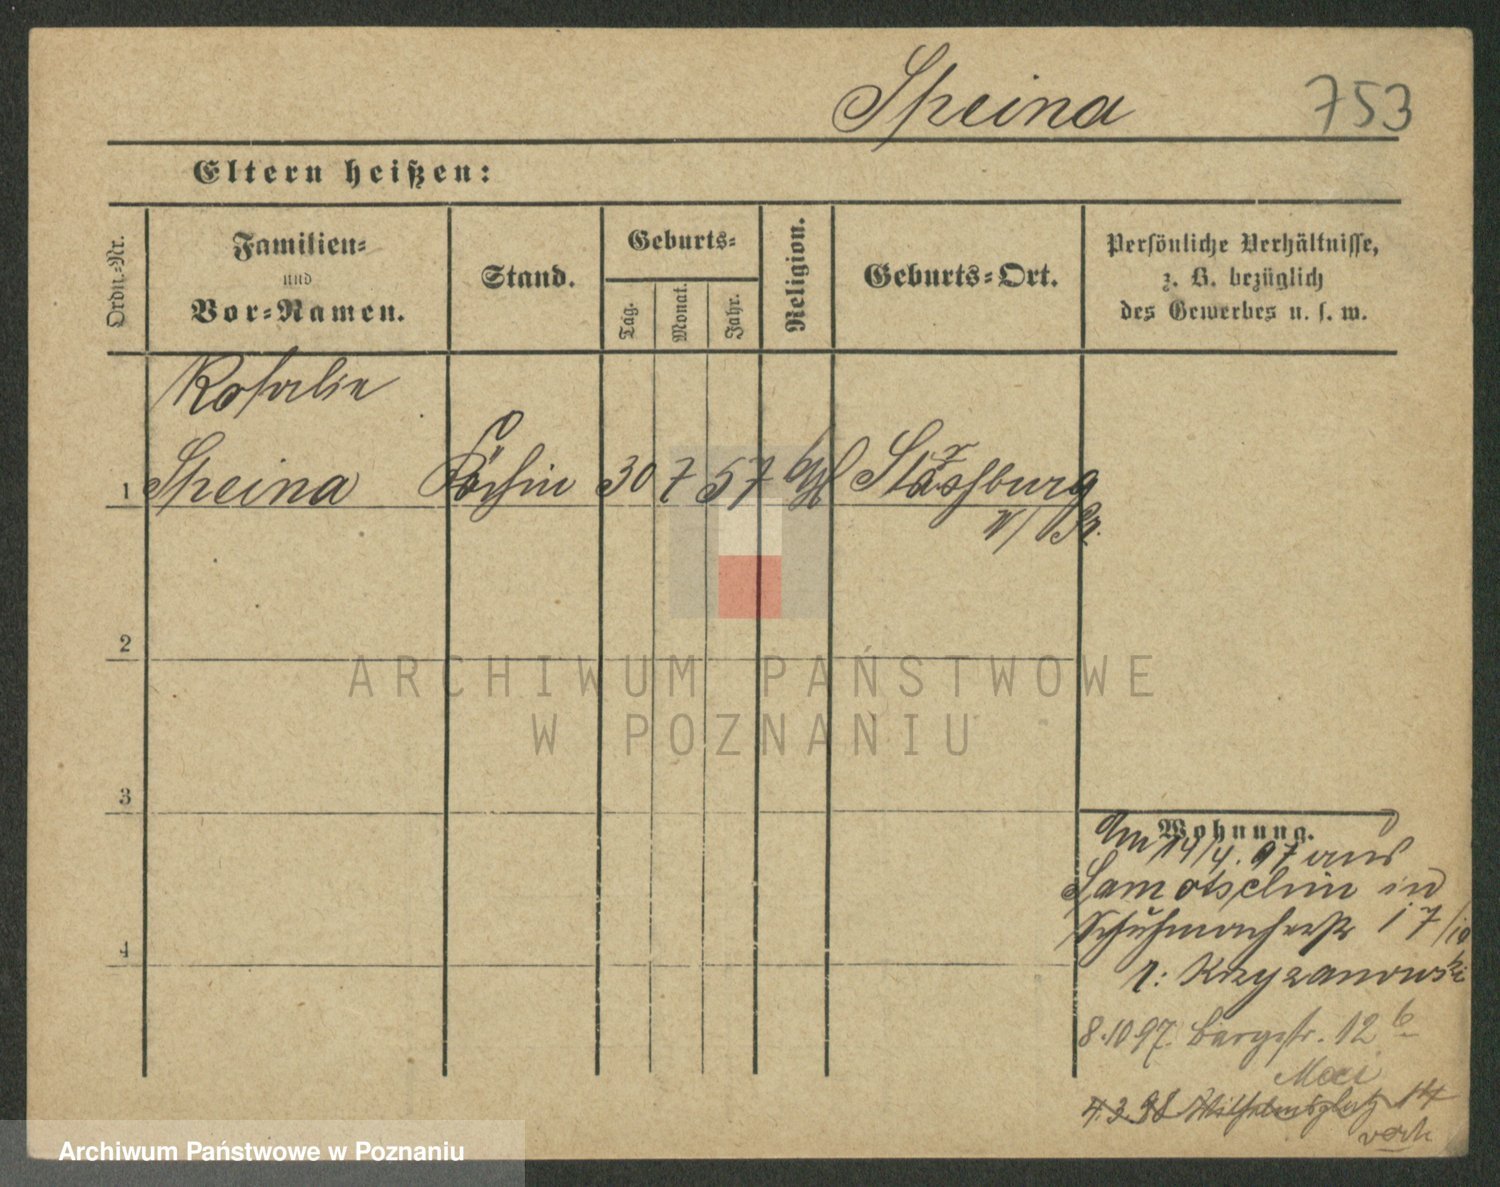 Speina 753
Eltern heißen:
Ordn.-Nr.
Familien-
und
Vor-Namen.
Stand.
Geburts-
Tag.
Monat.
Jahr.
Religion.
Geburts-Ort.
Persönliche Verhältnisse,
z. B. bezüglich
des Gewerbes u. s. w.
Rosalie
1 Speina Köchin 30 7 57 kath Strasburg
W/Pr.
2
3
4
Wohnung.
Am 14/4. 97 aus
Samotschin in
Schuhmacherstr 17/10
b: Krzyzanowski
8.10 97. Bergstr. 12 b
4.3.98 Wilhelmsplatz 14
ARCHIWUM PAŃSTWOWE
W POZNANIU
Archiwum Państwowe w Poznaniu